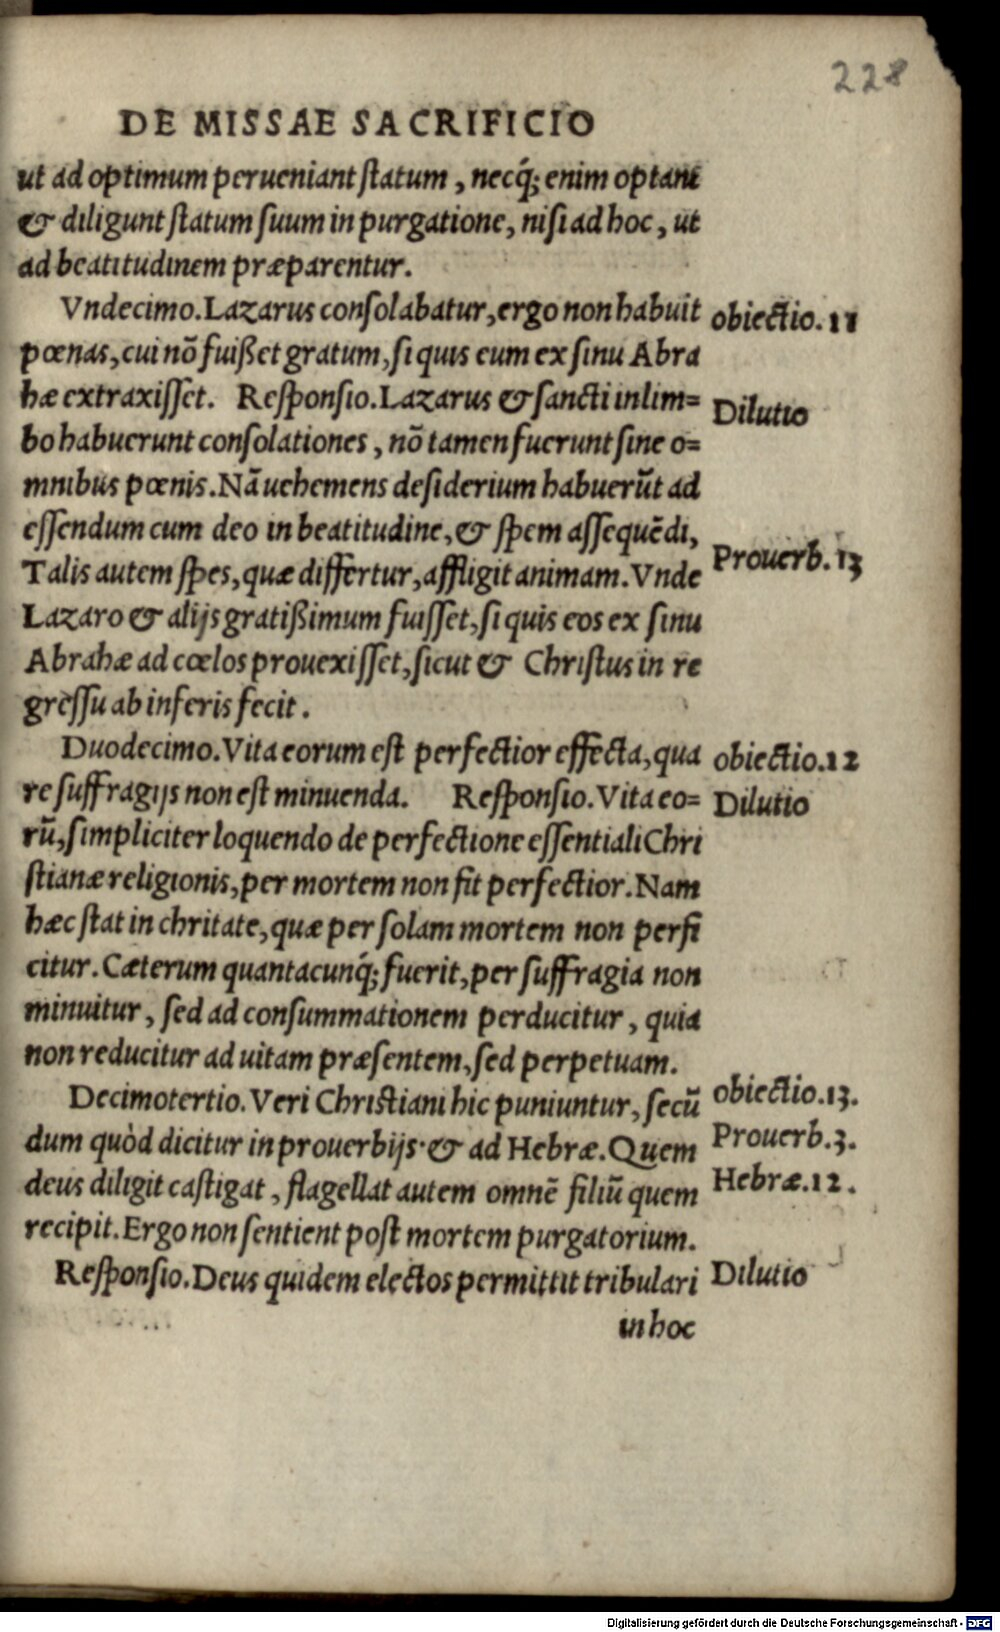 228
DE MISSAE SACRIFICIO
ut ad optimum perueniant ſtatum, necq́; enim optant
& diligunt ſtatum ſuum in purgatione, niſi ad hoc, ut
ad beatitudinem præparentur.
Vndecimo. Lazarus conſolabatur, ergo non habuit
obiectio. 11
pœnas, cui nõ fuiſſet gratum, ſi quis eum ex ſinu Abra
hæ extraxiſſet. Reſponſio. Lazarus & ſancti in lim=
Dilutio
bo habuerunt conſolationes, nõ tamen fuerunt ſine o=
mnibus pœnis. Nã uehemens deſiderium habuerũt ad
eſſendum cum deo in beatitudine, & ſpem aſſequẽdi,
Talis autem ſpes, quæ differtur, affligit animam. Vnde
Prouerb. 13
Lazaro & alijs gratiſſimum fuiſſet, ſi quis eos ex ſinu
Abrahæ ad cœlos prouexiſſet, ſicut & Chriſtus in re
greſſu ab inferis fecit.
Duodecimo. Vita eorum eſt perfectior effecta, qua
obiectio. 12
re ſuffragijs non eſt minuenda. Reſponſio. Vita eo=
Dilutio
rũ, ſimpliciter loquendo de perfectione eſſentiali Chri
ſtianæ religionis, per mortem non fit perfectior. Nam
hæc ſtat in chritate, quæ per ſolam mortem non perfi
citur. Cæterum quantacunq́; fuerit, per ſuffragia non
minuitur, ſed ad conſummationem perducitur, quia
non reducitur ad uitam præſentem, ſed perpetuam.
Decimotertio. Veri Chriſtiani hic puniuntur, ſecũ
obiectio. 13.
dum quòd dicitur in prouerbijs· & ad Hebræ. Quem
Prouerb. 3.
deus diligit caſtigat, flagellat autem omnẽ filiũ quem
Hebræ. 12.
recipit. Ergo non ſentient poſt mortem purgatorium.
Reſponſio. Deus quidem electos permittit tribulari
Dilutio
in hoc
Digitalisierung gefördert durch die Deutsche Forschungsgemeinschaft - DFG